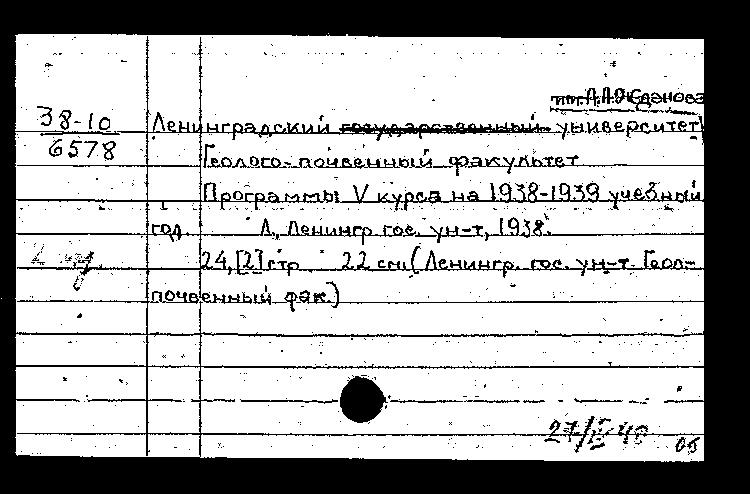 им. А.А. Жданова
38-10 Ленинградский государственный университет
6578 Геолого-почвенный факультет
Программы V курса на 1938-1939 учебный
год. Л., Ленингр. гос. ун-т, 1938.
24, [2] стр. 22 см. (Ленингр. гос. ун-т. Геол-
почвенный фак.)
27/IV 40